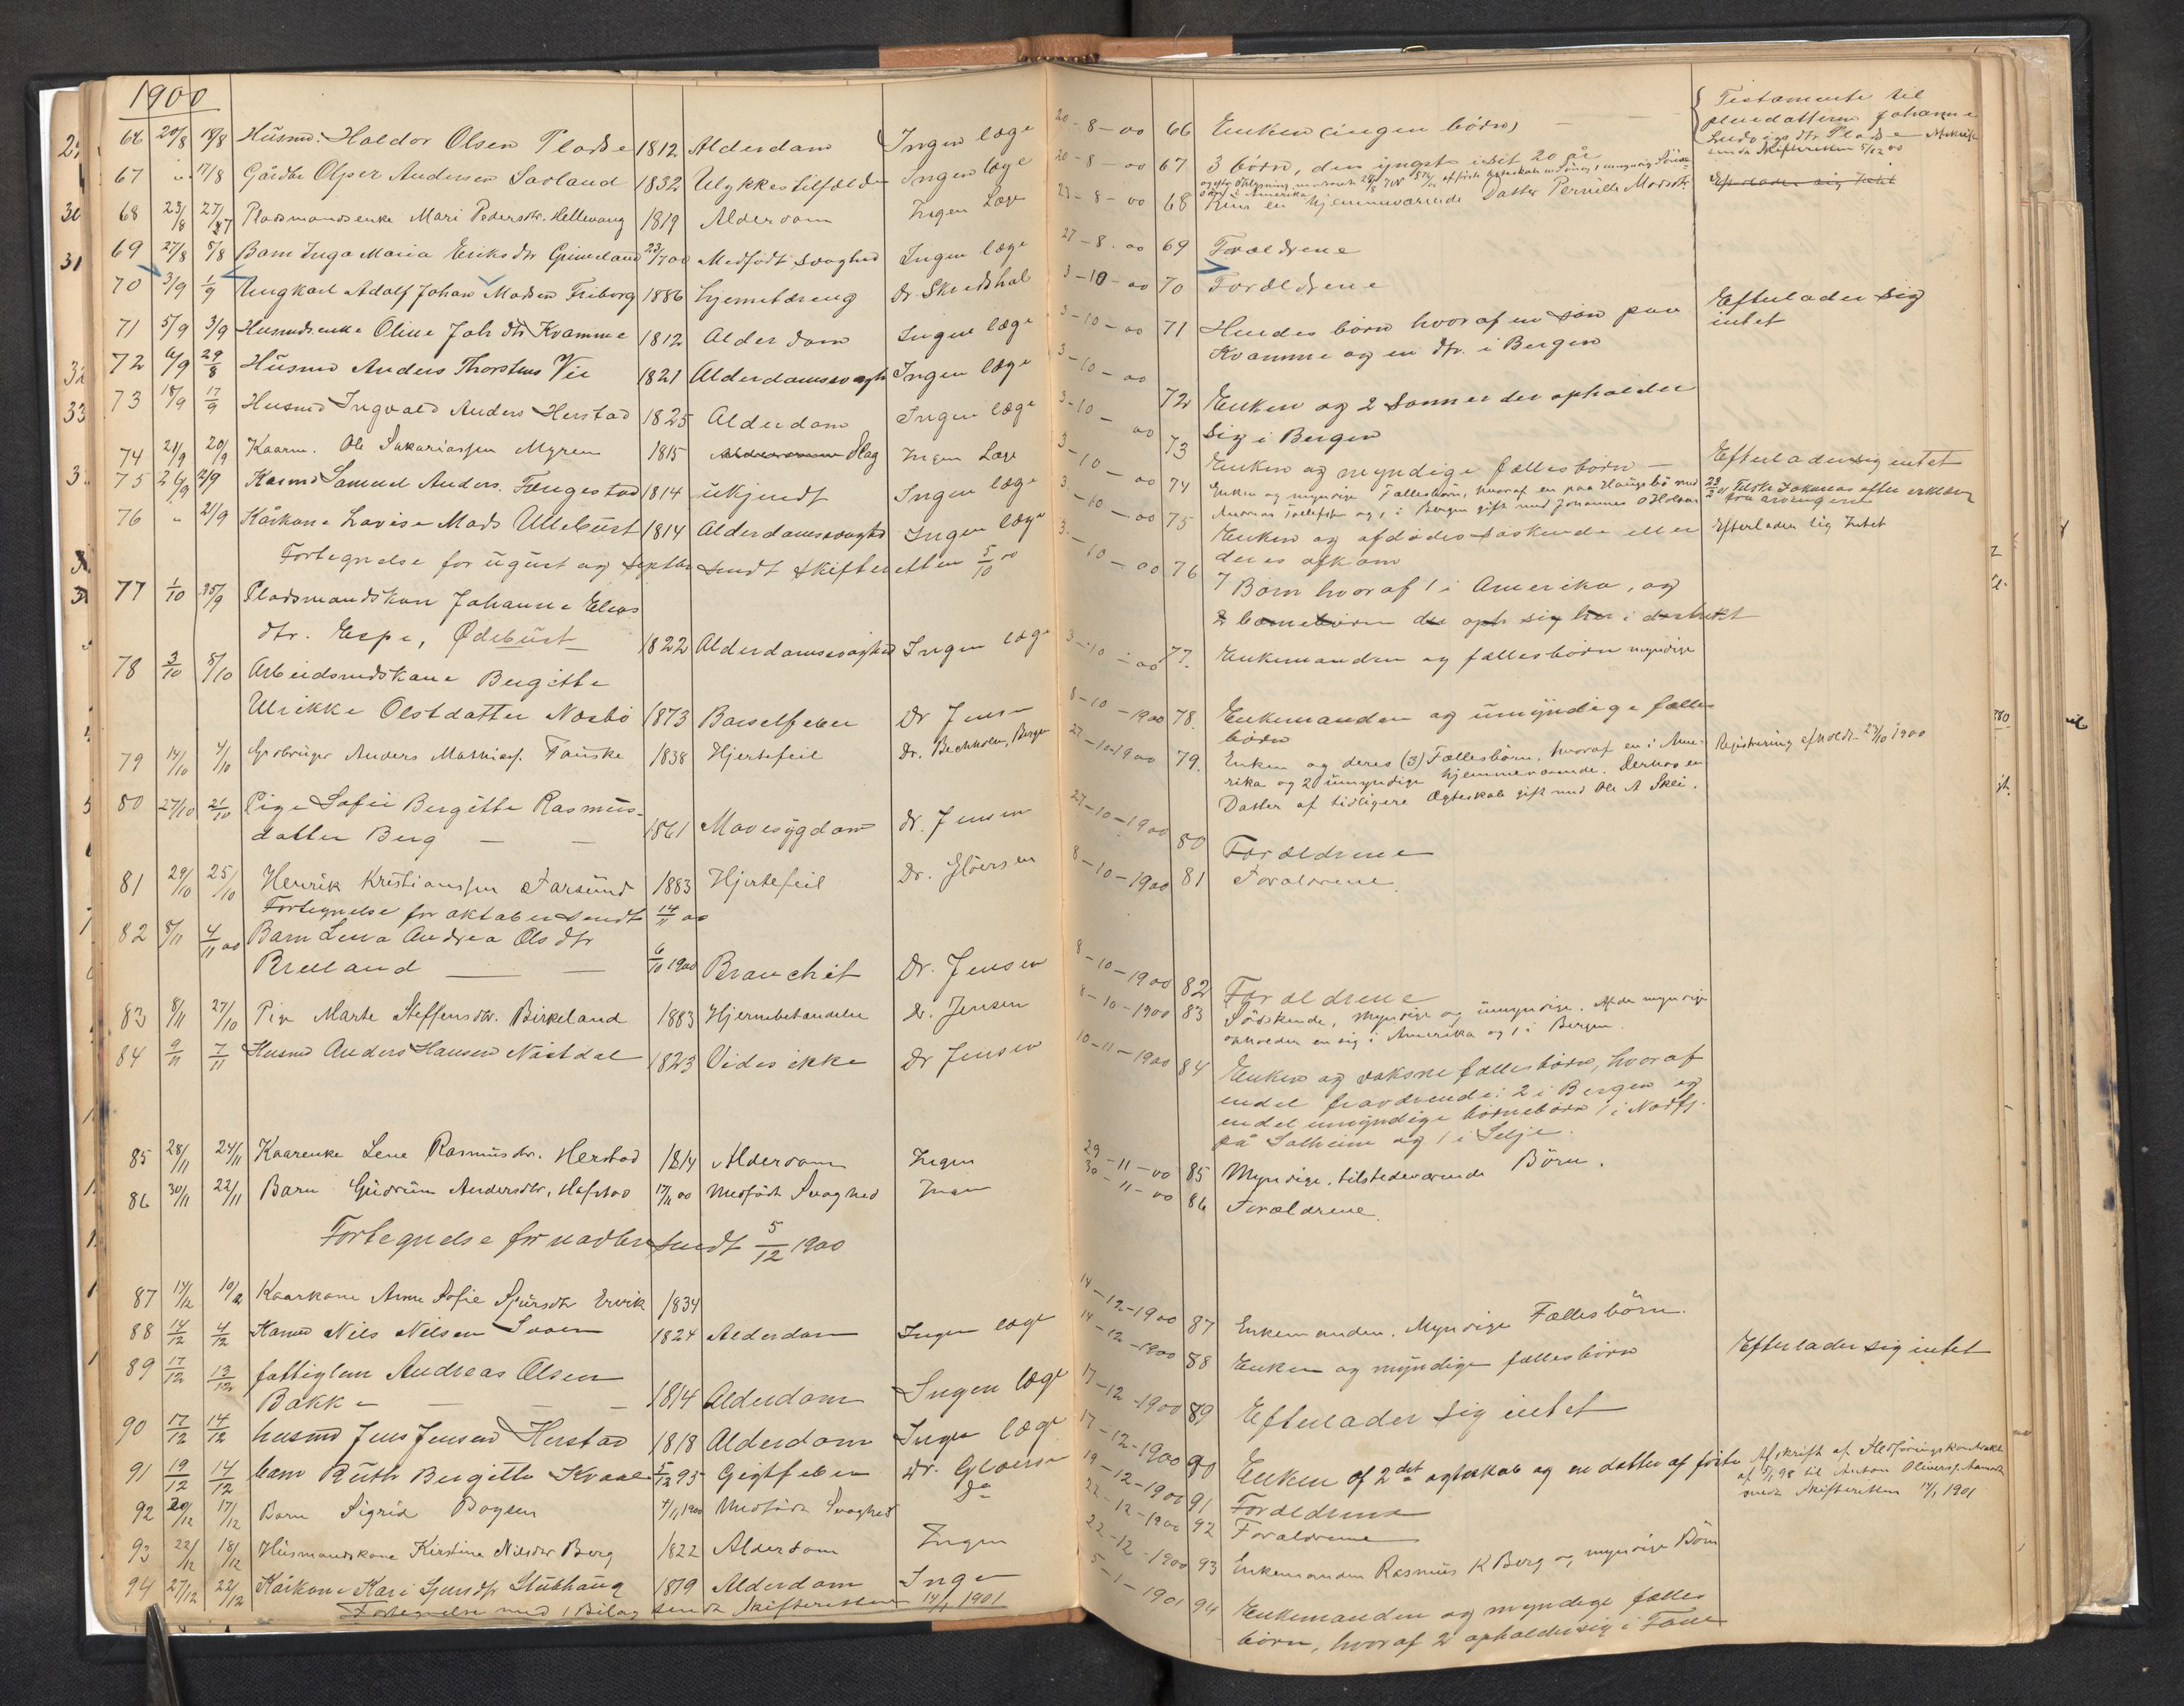 1900
66 20/8 18/8 Husmd. Haldor Olsen Pladse 1812 Alderdom Ingen læge
67 " 17/8 Gårdbr Olper Andersen Savland 1832 Ulykkestilfælde Ingen læge
68 23/8 Pladsmandsenke Mari Pedersdtr. Hellevang 1819 Alderdom Ingen Læge
69 27/8 5/8 Barn Inga Maria Eriksdtr Grimeland 23/7 00 Medfödt svaghed Ingen læge
70 3/9 1/9 Ungkarl Adolf Johan Madsen Friborg 1886 Hjernetæring Dr. Skredshol
71 5/9 3/9 Husmdsenke Oline Joh dtr Kvamme 1812 Alderdom Ingen læge
72 6/9 29/8 Husmd Anders Thorstens Vie 1821 Alderdomssvagh Ingen læge
73 18/9 17/9 Husmd Ingvald Anders Herstad 1825 Alderdom Ingen læge
74 21/9 20/9 Kaarm. Ole Sakariassen Myren 1815 Slag Ingen Læge
75 26/9 21/9 Kaarmd Samuel Anders. Fængestad 1814 ukjendt Ingen læge
76 " 21/9 Kårkone Lovise Mads Ullebust 1814 Alderdomssvaghed Ingen læge
Fortegnelse for ugust og septbr sendt skifteretten 5/10 00
77 1/10 25/9 Pladsmandskon Johanne Elias
dtr. Espe, Ødebust 1822 Alderdomssvaghed Ingen læge
78 3/10 5/10 Arbeidsmdskone Bergitte
Ulrikke Olsdatter Nosbö 1873 Barselfeber Dr Jensen
79 14/10 4/10 Gbrbruger Anders Mathias. Fauske 1838 Hjertefeil Dr. Bechholm, Bergen
80 27/10 21/10 Pige Sofie Bergitte Rasmus-
datter Berg — — 1861 Mavesygdom Dr. Jensen
81 29/10 25/10 Henrik Kristianssen Farsund 1883 Hjertefeil Dr. Gloersen
Fortegnelse for oktober sendt 14/11 00
82 8/11 4/11 00 Barn Lena Andrea Ols dtr
Breland — — 6/10 1900 Bronchit Dr. Jensen
83 8/11 27/10 Pige Marte Steffensdtr. Birkeland 1883 Hjernebetændelse Dr. Jensen
84 9/11 7/11 Husmd Anders Hansen Nåstdal 1823 Vides ikke Dr Jensen
85 28/11 24/11 Kaarenke Lene Rasmusdtr. Herstad 1814 Alderdom Ingen
86 30/11 22/11 Barn Gudrun Andersdtr. Hafstad 17/11 00 Medfödt Svaghed Ingen
Fortegnelse for novbr sendt 5/12 1900
87 14/12 10/12 Kaarkone Anne Sofie Sjursdtr Ervik 1834
88 14/12 4/12 Kaarmd Nils Nilsen 1824 Alderdom Ingen læge
89 17/12 13/12 fattiglem Andreas Olsen
Bakke — — 1814 Alderdom Ingen læge
90 17/12 14/12 husmd Jens Jensen Herstad 1818 Alderdom Ingen læge
91 19/12 14/12 barn Ruth Bergitte Kvaal 5/12 95 Gigtfeber Dr. Gloersen
92 20/12 17/12 Barn Sigrid Bogsen 4/11 1900 Medfödt Svaghed Do
93 22/12 18/12 Husmandskone Kirstine Nilsdtr Berg 1822 Alderdom Ingen
94 27/12 22/12 Kårkone Kari Sjursdtr Stubhaug 1819 Alderdom Ingen
Fortegnelse med 1 Bilag sendt skifteretten 14/1 1901
20-8-00 66 Enken (ingen börn) — — Testamente til
pleiedatteren Johanne
Ludvigsdtr Pladse Afskrift
sendt Skifteretten 5/12 00
20-8-00 67 3 börn, den yngste i sit 20 år
23-8-00 68 Kun en hjemmeværende Datter Pernille Madsdtr. Efterlader sig Intet
27-8-00 69 Forældrene
3-10-00 70 Forældrene
3-10-00 71 Hendes börn hvoraf en sön paa
Kvamme og en dtr. i Bergen Efterlader sig
intet
3-10-00 72 Enken og 2 Sönner der opholder
sig i Bergen
3-10-00 73 Enken og myndige fællesbörn — Efterlader sig intet
3-10-00 74 Enken og myndige Fællesbörn, hvoraf en paa Haugsbö med
Andreas Tollefsen og 1 i Bergen gift med Johannes O Holsen
3-10-00 75 Enken og afdödes söskende eller
deres afkom Efterlader sig Intet
3-10-00 76 7 Börn hvoraf 1 i Amerika, og
2 börnebörn der oph sig her i distrikt
3-10-00 77. Enkemanden og fællesbörn myndige
8-10-1900 78. Enkemanden og umyndige fælles
börn
27-10-1900 79. Enken og deres (3) Fællesbörn, hvoraf en i Ame-
rika og 2 umyndige hjemmeværende. Derhos en
Datter af tidligere Ægteskab gift med Ole A Skei. Registrering afholdt 23/10 1900
27-10-1900 80 Forældrene
8-10-1900 81 Forældrene
8-10-1900 82 Forældrene
8-10-1900 83 Södskende, myndige og umyndige. Af de myndige
opholder en sig i Amerika og 1 i Bergen.
10-11-1900 84 Enken og voksne fællesbörn, hvoraf
endel fraværende: 2 i Bergen og
endel umyndige börnebörn 1 i Nordfj.
på Solheim og 1 i Selje.
29-11-00 85 Myndige, tilstedeværende Börn.
30-11-00 86 Forældrene.
14-12-1900 87 Enkemanden. Myndige Fællesbörn.
14-12-1900 88 Enken og myndige fællesbörn Efterlader sig intet
17-12-1900 89 Efterlader sig intet
17-12-1900 90 Enken af 2det ægteskab og en datter af förste Afskrift af Födföringskontrakt
af 5/1 98 til Anton Olivers.
sendt Skifteretten 14/1 1901
19-12-1900 91 Forældrene
22-12-1900 92 Forældrene
22-12-1900 93 Enkemanden Rasmus K Berg og myndige Börn
5-1-1901 94 Enkemanden og myndige fælles
börn, hvoraf 2 opholder sig i Fane